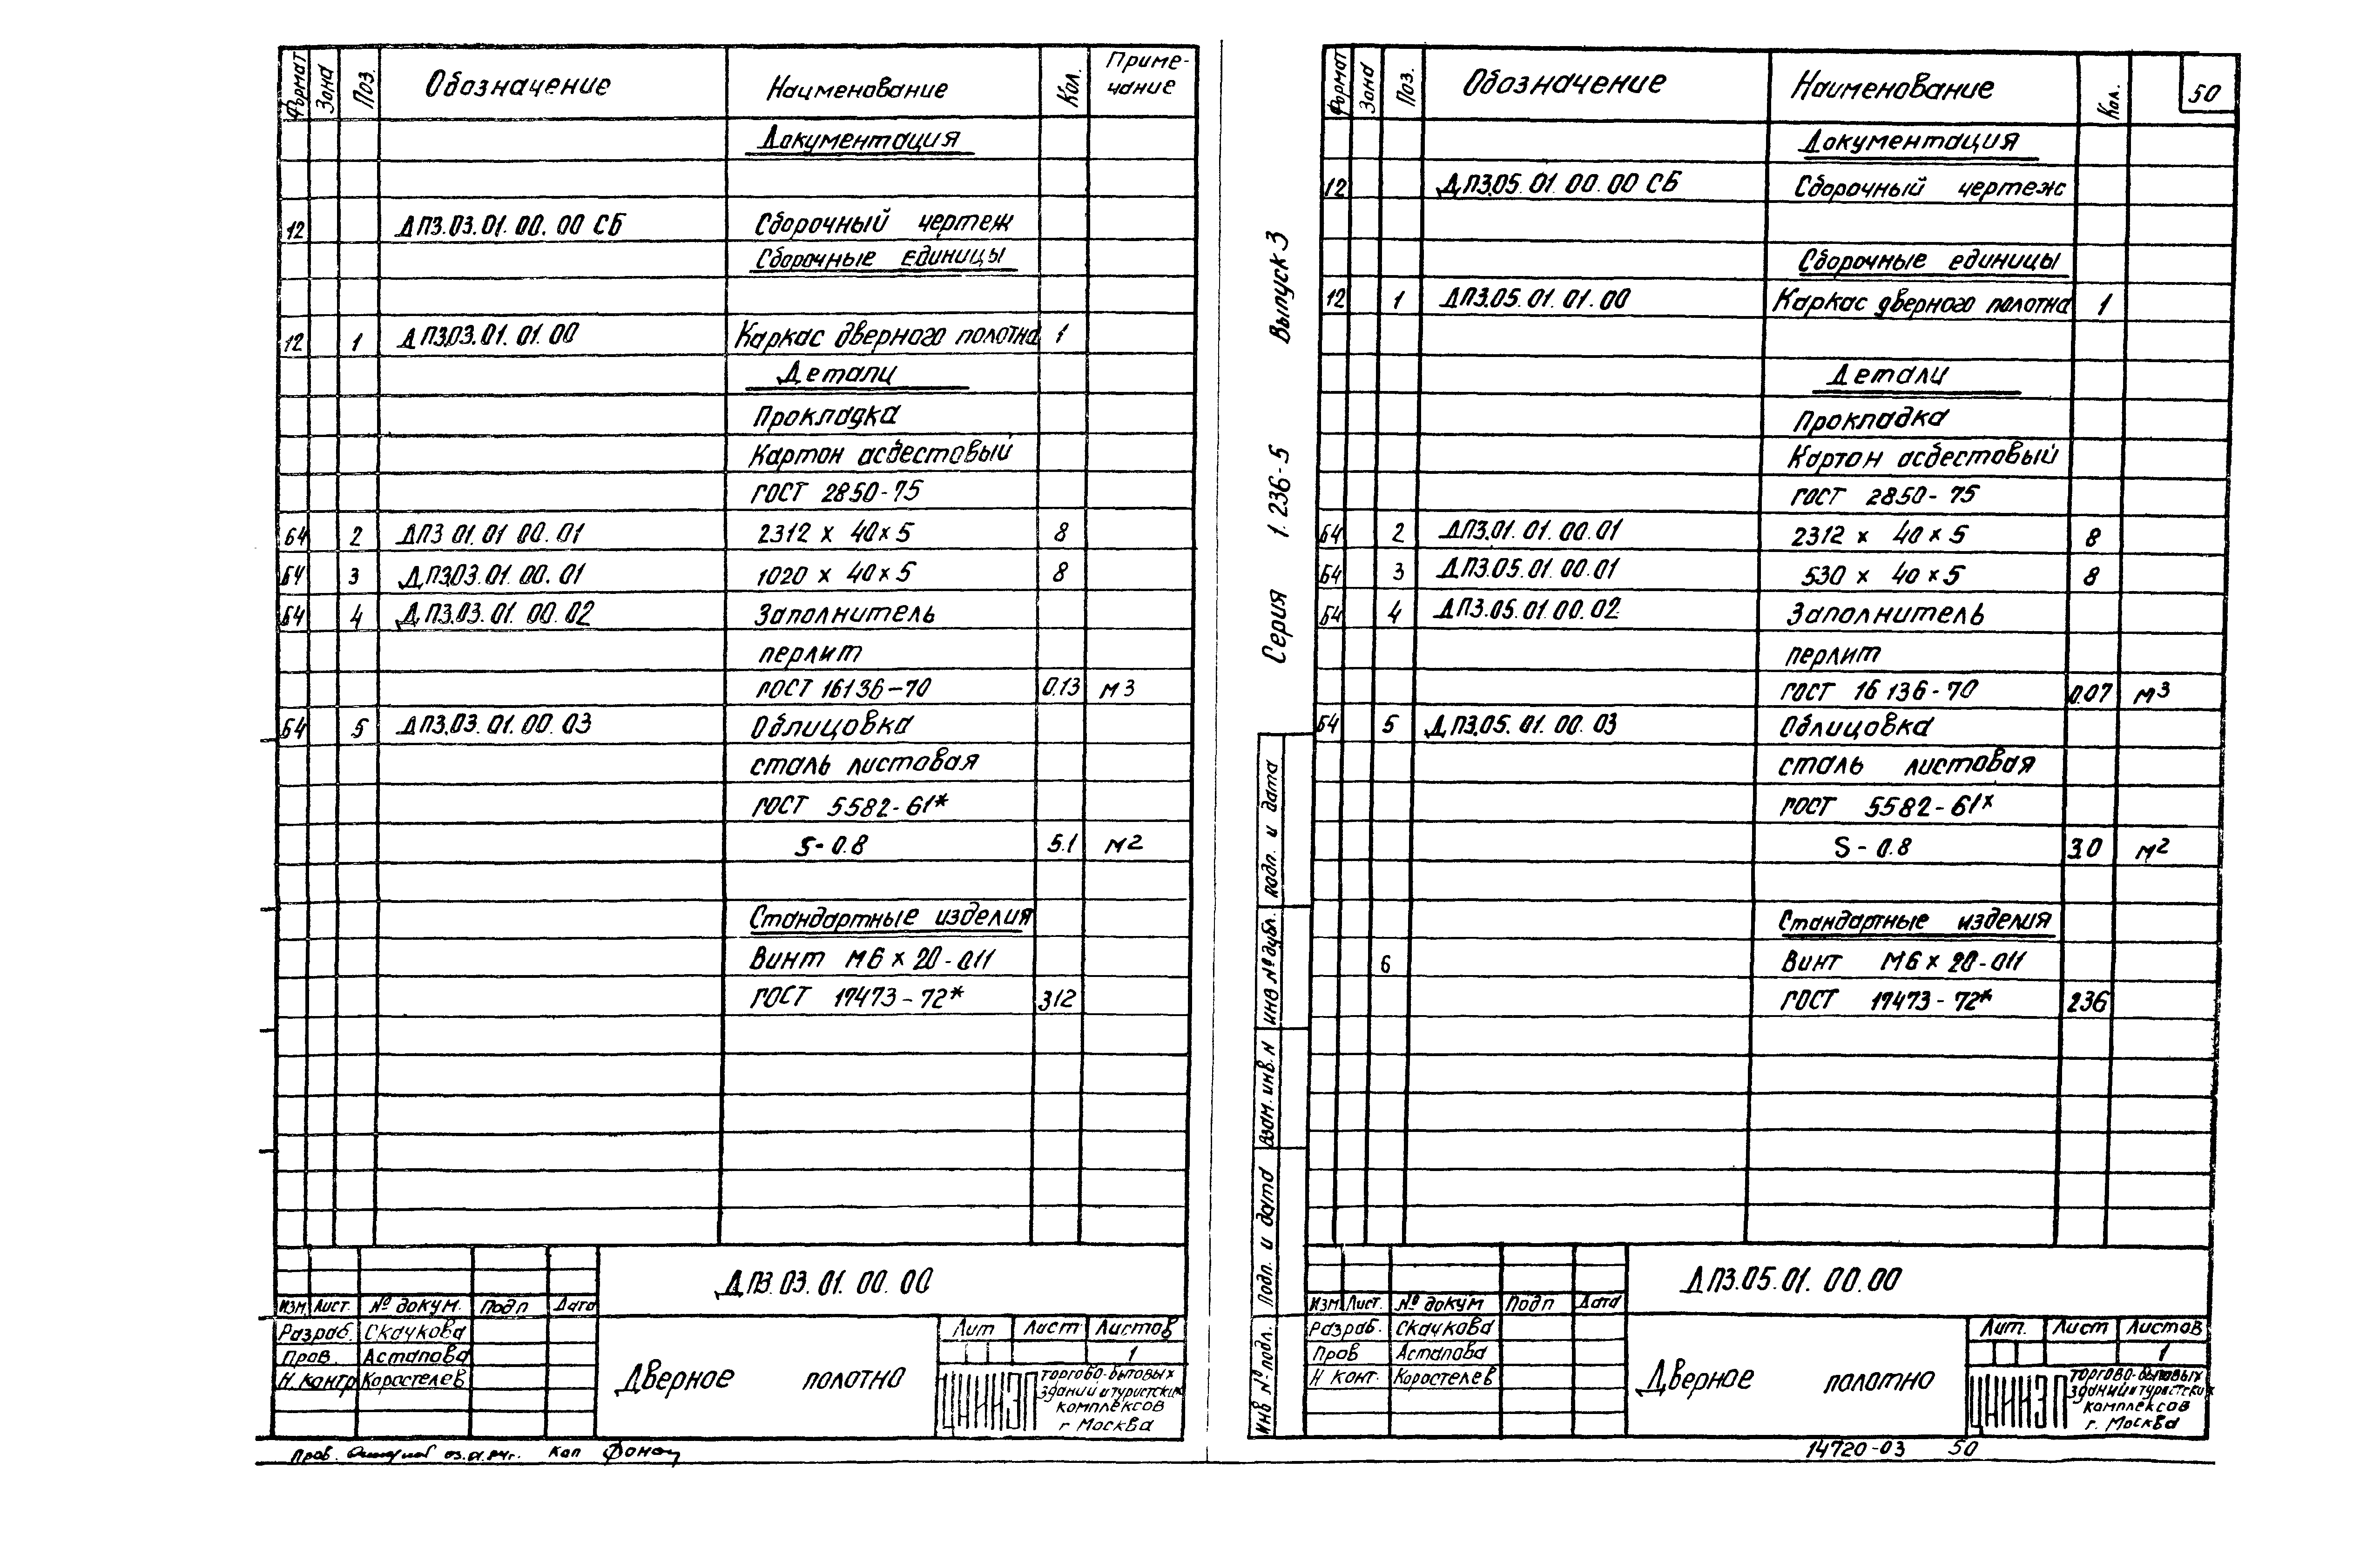 Формат Зона Поз. Обозначение Наименование Кол. Приме-
чание
Документация
12 ДПЗ.03.01.00.00 СБ Сборочный чертеж
Сборочные единицы
12 1 ДПЗ.03.01.01.00 Каркас дверного полотна 1
Детали
Прокладка
Картон асбестовый
ГОСТ 2850-75
Б4 2 ДПЗ 01.01 00.01 2312 х 40х5 8
Б4 3 ДПЗ.03.01.00.01 1020 х 40х5 8
Б4 4 ДПЗ.03.01.00.02 Заполнитель
перлит
ГОСТ 16136-70 0.13 м3
Б4 5 ДПЗ.03.01.00.03 Облицовка
сталь листовая
ГОСТ 5582-61*
S-0.8 5.1 м2
Стандартные изделия
Винт М6х20-011
ГОСТ 17473-72* 312
ДПЗ.03.01.00.00
Изм Лист. № докум. Подп Дата
Разраб. Скачкова
Пров. Астапова
Н.контр Коростелев
Дверное полотно
Лит Лист Листов
1
ЦНИИЭП
торгово-бытовых
зданий и туристских
комплексов
г Москва
Пров. 03.01.84г. Кап
Выпуск 3
Серия 1.236-5
Формат Зона Поз. Обозначение Наименование Кол. 50
Документация
12 ДПЗ.05.01.00.00 СБ Сборочный чертеж
Сборочные единицы
12 1 ДПЗ.05.01.01.00 Каркас дверного полотна 1
Детали
Прокладка
Картон асбестовый
ГОСТ 2850-75
Б4 2 ДПЗ.01.01.00.01 2312 х 40х5 8
Б4 3 ДПЗ.05.01.00.01 530 х 40х5 8
Б4 4 ДПЗ.05.01.00.02 Заполнитель
перлит
ГОСТ 16136-70 0.07 м3
Б4 5 ДПЗ.05.01.00.03 Облицовка
сталь листовая
ГОСТ 5582-61х
S-0.8 3.0 м2
Стандартные изделия
6 Винт М6х20-011
ГОСТ 17473-72* 236
Инв № подл. Подп. и дата Взам. инв. N Инв № дубл. Подп. и дата
ДПЗ.05.01.00.00
Изм Лист. № докум Подп Дата
Разраб. Скачкова
Пров Астапова
Н Конт. Коростелев
Дверное полотно
Лит. Лист Листов
1
ЦНИИЭП
торгово-бытовых
зданий и туристских
комплексов
г. Москва
14720-03 50